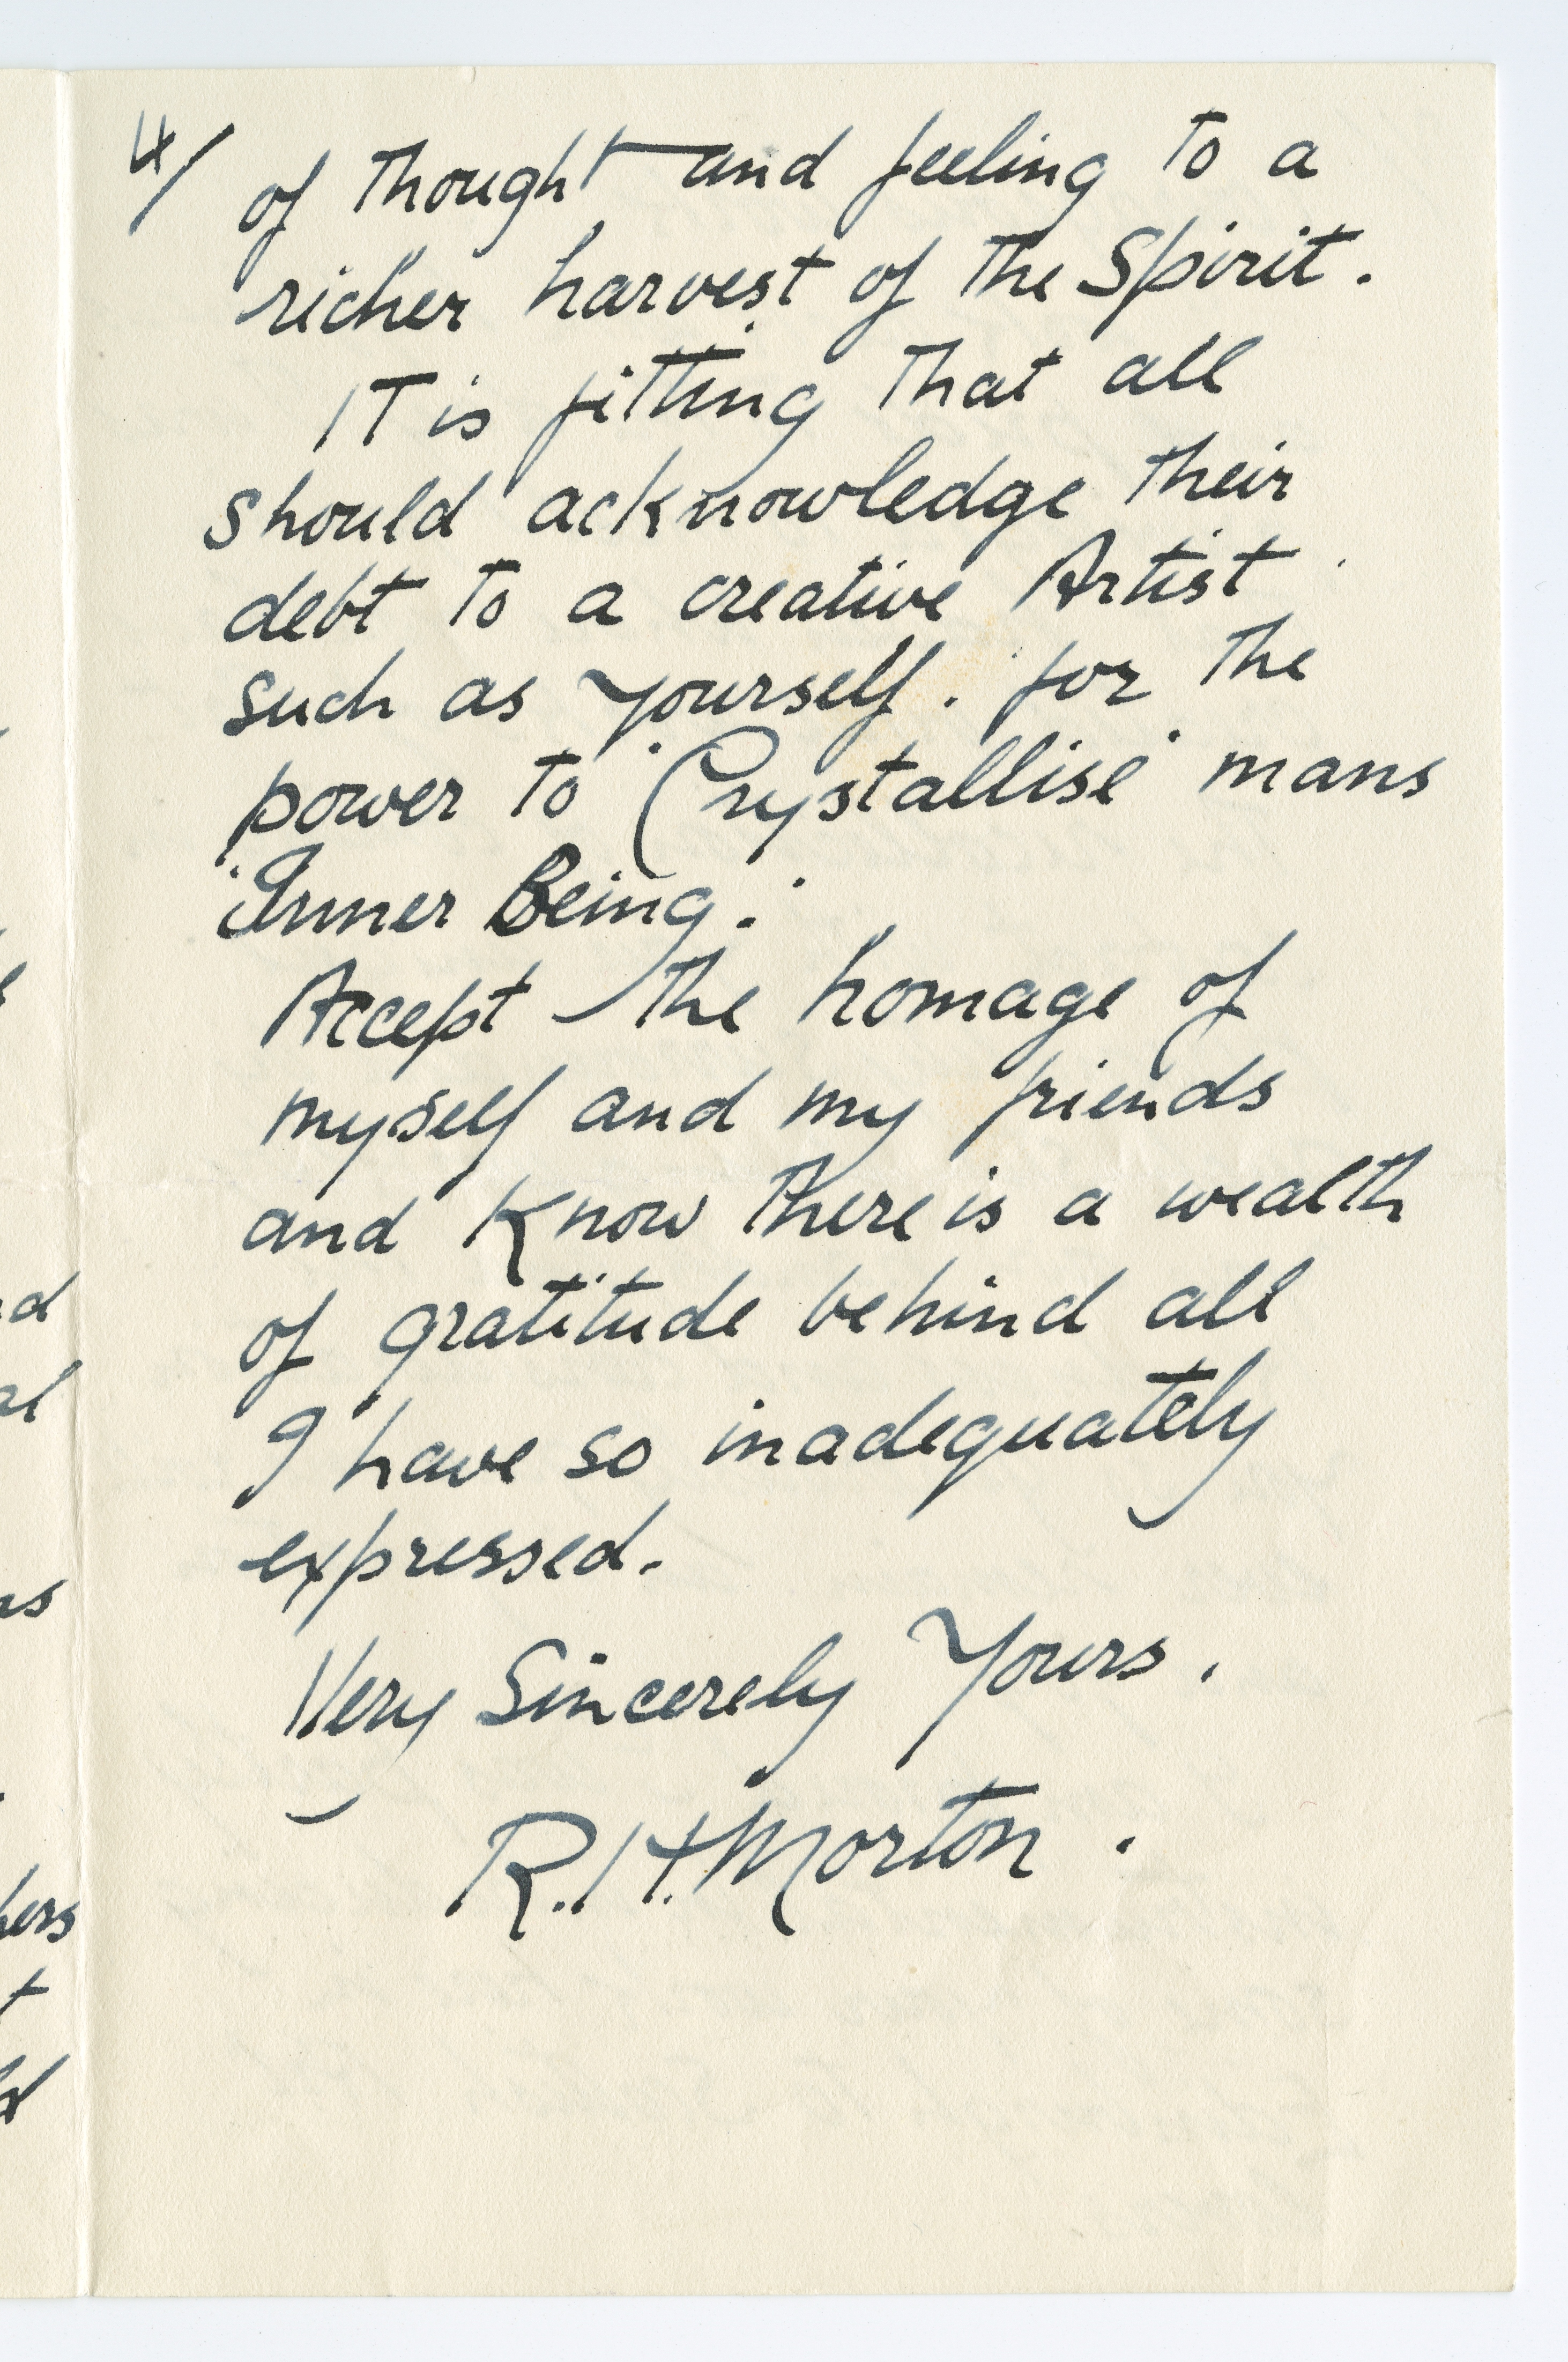 4/
of thought and feeling to a
richer harvest of the Spirit.
IT is fitting that all
should acknowledge their
debt to a creative Artist
such as yourself. for the
power to 'Crystallise' mans
'Inner Being.'
Accept the homage of
myself and my friends
and Know there is a wealth
of gratitude behind all
I have so inadequately
expressed.
Very Sincerely Yours.
R. H. Morton.